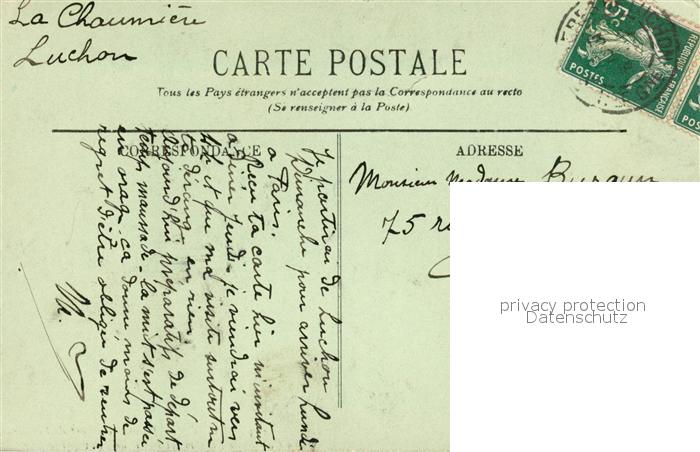 La Chaumière
Luchon
CARTE POSTALE
Tous les Pays étrangers n'acceptent pas la Correspondance au recto
(Se renseigner à la Poste)
CORRESPONDANCE
ADRESSE
Je partirai de Luchon
Dimanche pour arriver Lundi
à Paris.
Reçu ta carte hier m'invitant
à dîner Jeudi. je viendrai vers
et que ma visite surtout ne
te dérange en rien.
Aujourd'hui préparatifs de départ
temps maussade. la nuit s'est passée
en orage. ça donne moins de
regret d'être obligée de rentrer.
M.
Monsieur Madame
75
5c
POSTES
REPUBLIQUE FRANÇAISE
privacy protection
Datenschutz